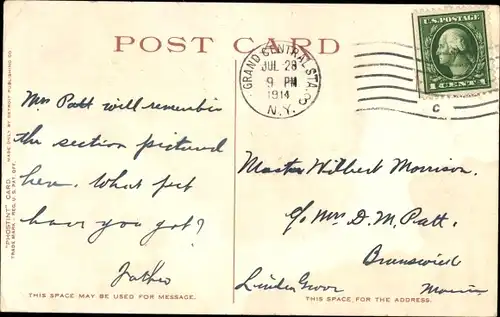 POST CARD
GRAND CENTRAL STA.
JUL 28
9 PM
1914
N.Y.
U.S. POSTAGE
1 CENT 1
C
Mrs Patt will remember
the section pictured
here. What pet
have you got?
Father
Master Wilbert Morrison.
c/o Mrs D. M. Patt.
Brunswick
Linden Grove
Maine
THIS SPACE MAY BE USED FOR MESSAGE.
THIS SPACE FOR THE ADDRESS.
"PHOSTINT" CARD. MADE ONLY BY DETROIT PUBLISHING CO.
TRADE MARK. REG. U.S. PAT. OFF.